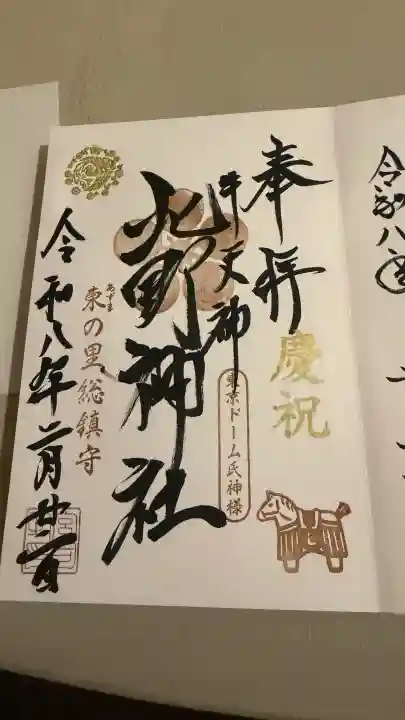 奉拝
慶祝
牛天神
東京ドーム氏神様
北野神社
あずま
東の里総鎮守
令和八年二月廿二日
令和八年